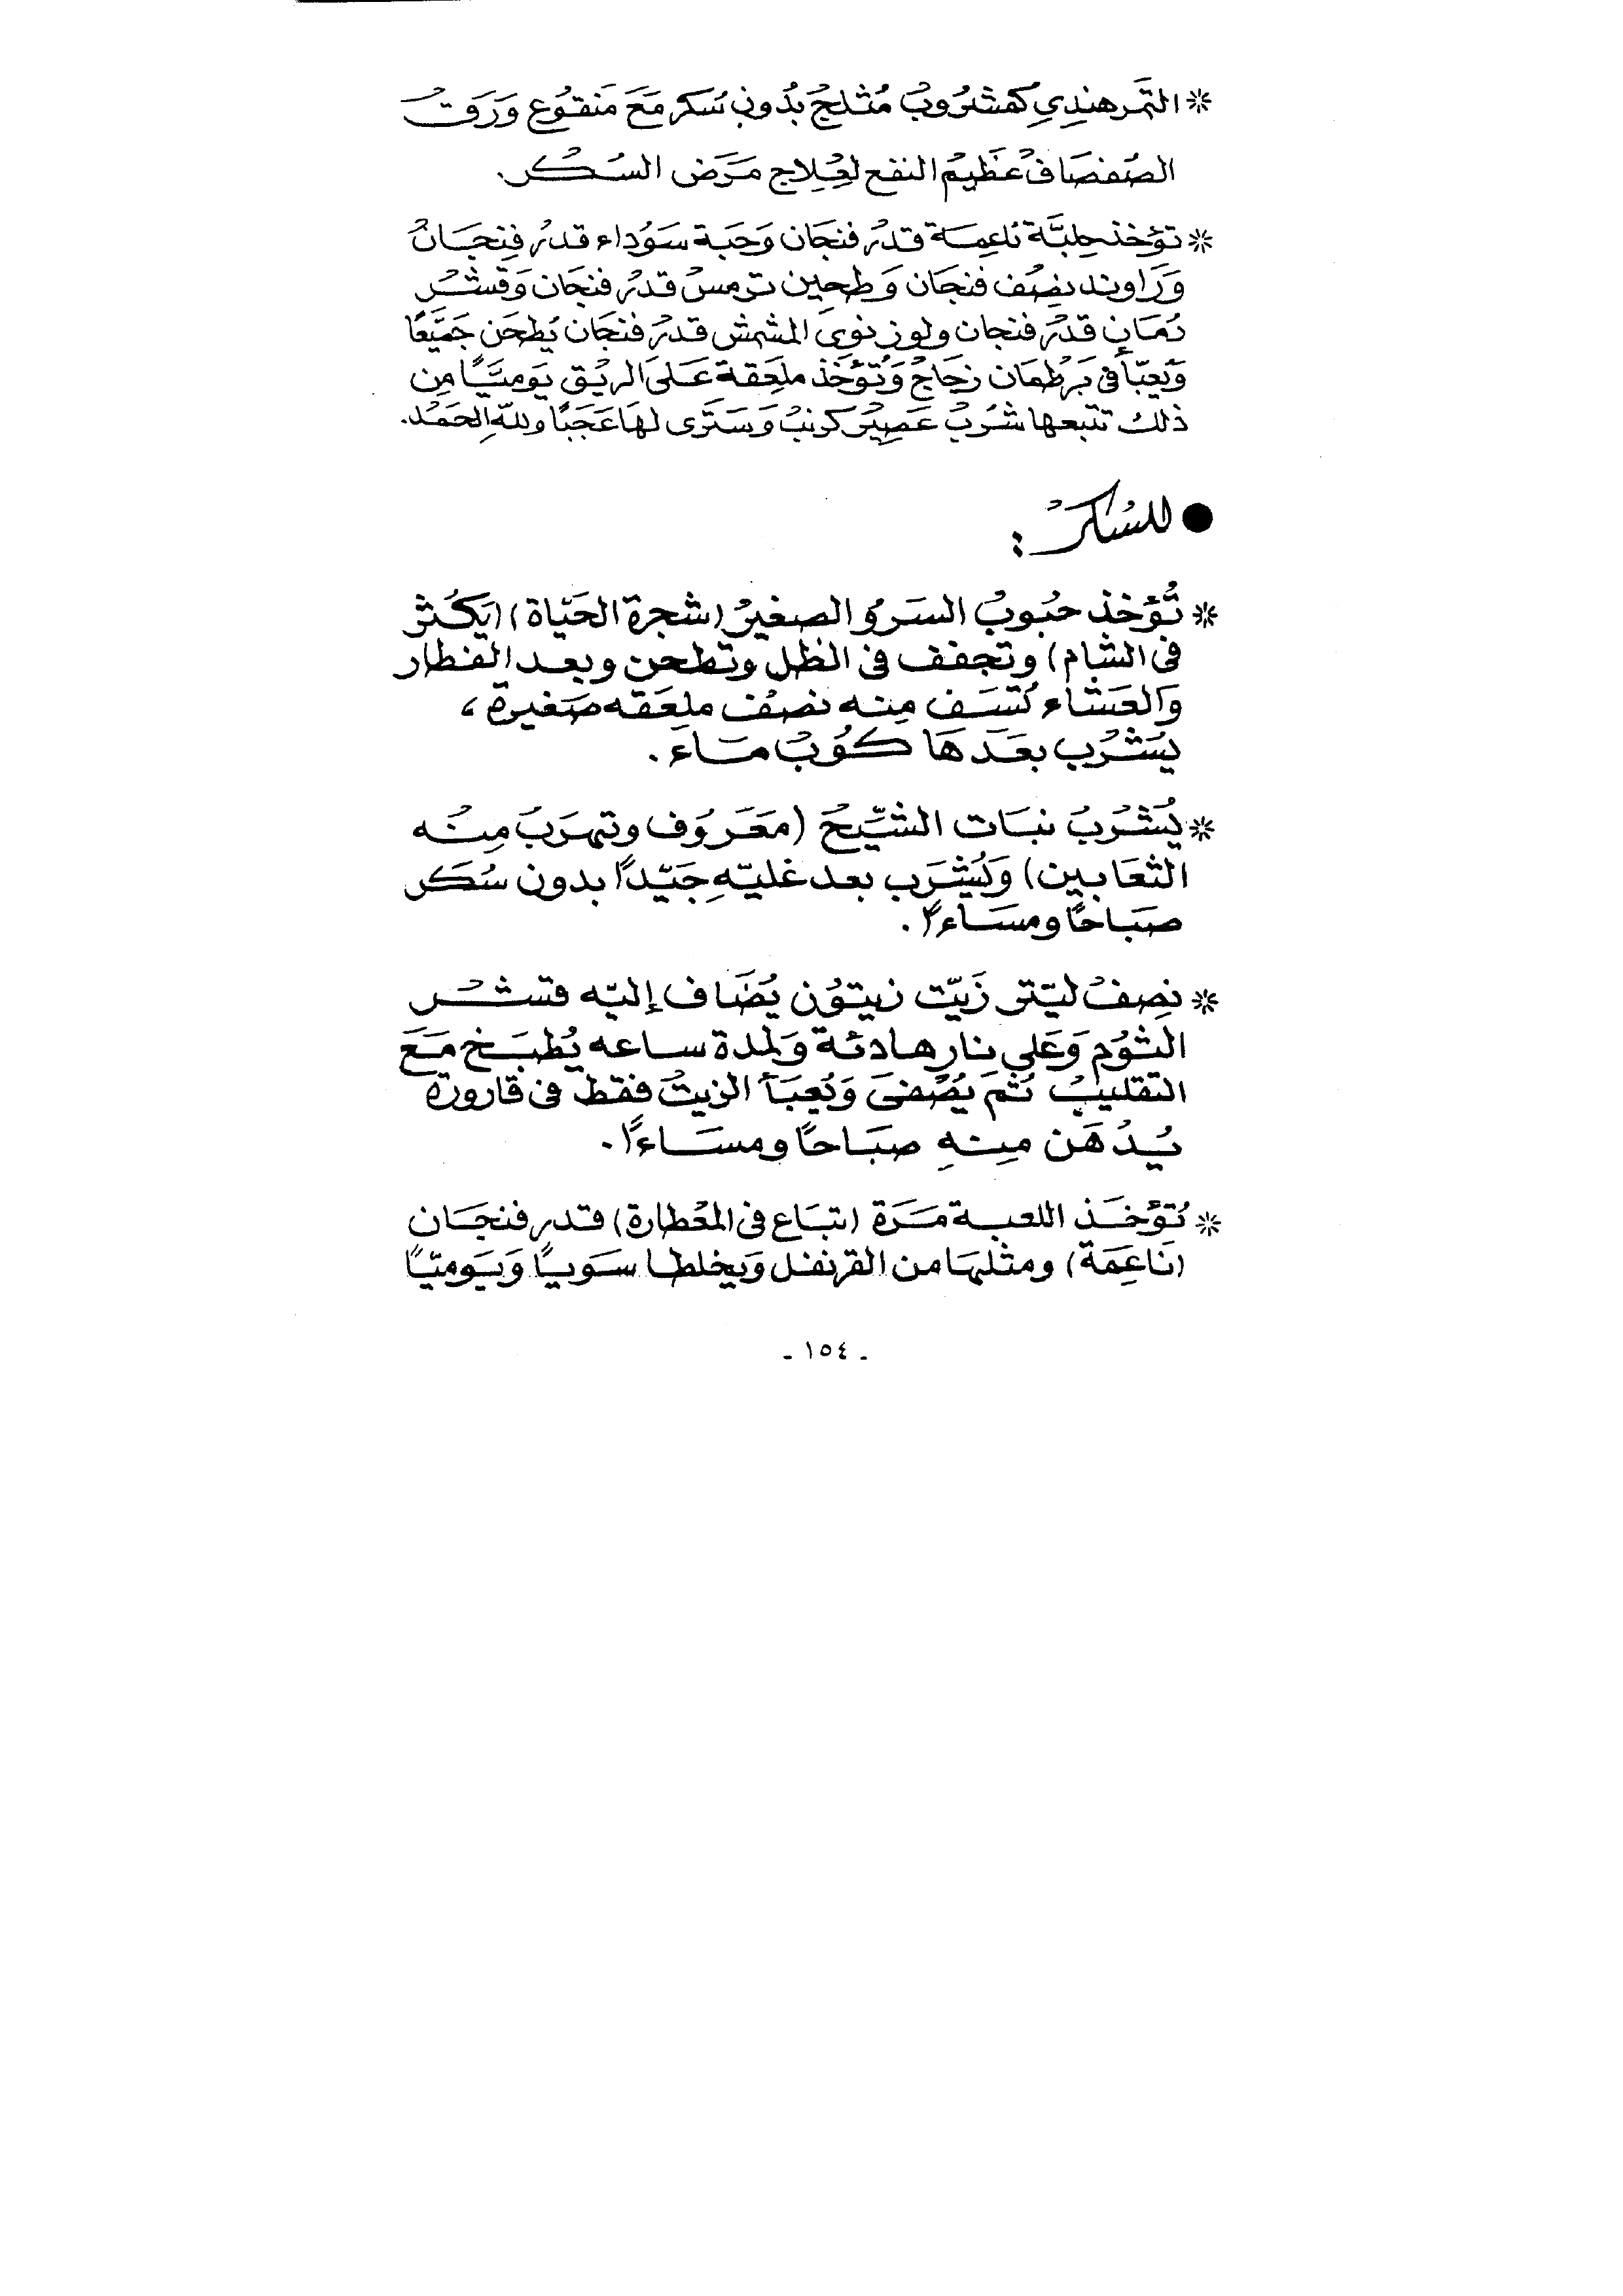 * التمر هندي كمشروب مثلج بدون سكر مع منقوع ورق
الصفصاف عظيم النفع لعلاج مرض السكر.
* تؤخذ حلبة ناعمة قدر فنجان وحبة سوداء قدر فنجان
وراوند نصف فنجان وطحين ترمس قدر فنجان وقشر
رمان قدر فنجان ولوز نوى المشمش قدر فنجان يطحن جميعًا
ويعبأ في برطمان زجاج وتؤخذ ملعقة على الريق يوميًا من
ذلك تتبعها شرب عصير كرنب وسترى لها عجبًا ولله الحمد.
● للسكر :
* تؤخذ حبوب السرو الصغير (شجرة الحياة) (يكثر
في الشام) وتجفف في الظل وتطحن وبعد الفطار
والعشاء تسف منه نصف ملعقه صغيرة،
يشرب بعدها كوب ماء.
* يشرب نبات الشيح (معروف وتهرب منه
الثعابين) ويشرب بعد غليه جيدًا بدون سكر
صباحًا ومساءًا.
* نصف ليتر زيت زيتون يضاف إليه قشر
الثوم وعلى نار هادئة ولمدة ساعه يطبخ مع
التقليب ثم يصفى ويعبأ الزيت فقط في قارورة
يدهن منه صباحًا ومساءًا.
* تؤخذ اللعبة مرة (تباع في العطارة) قدر فنجان
(ناعمة) ومثلها من القرنفل ويخلطا سويًا ويوميًا
- ١٥٤ -